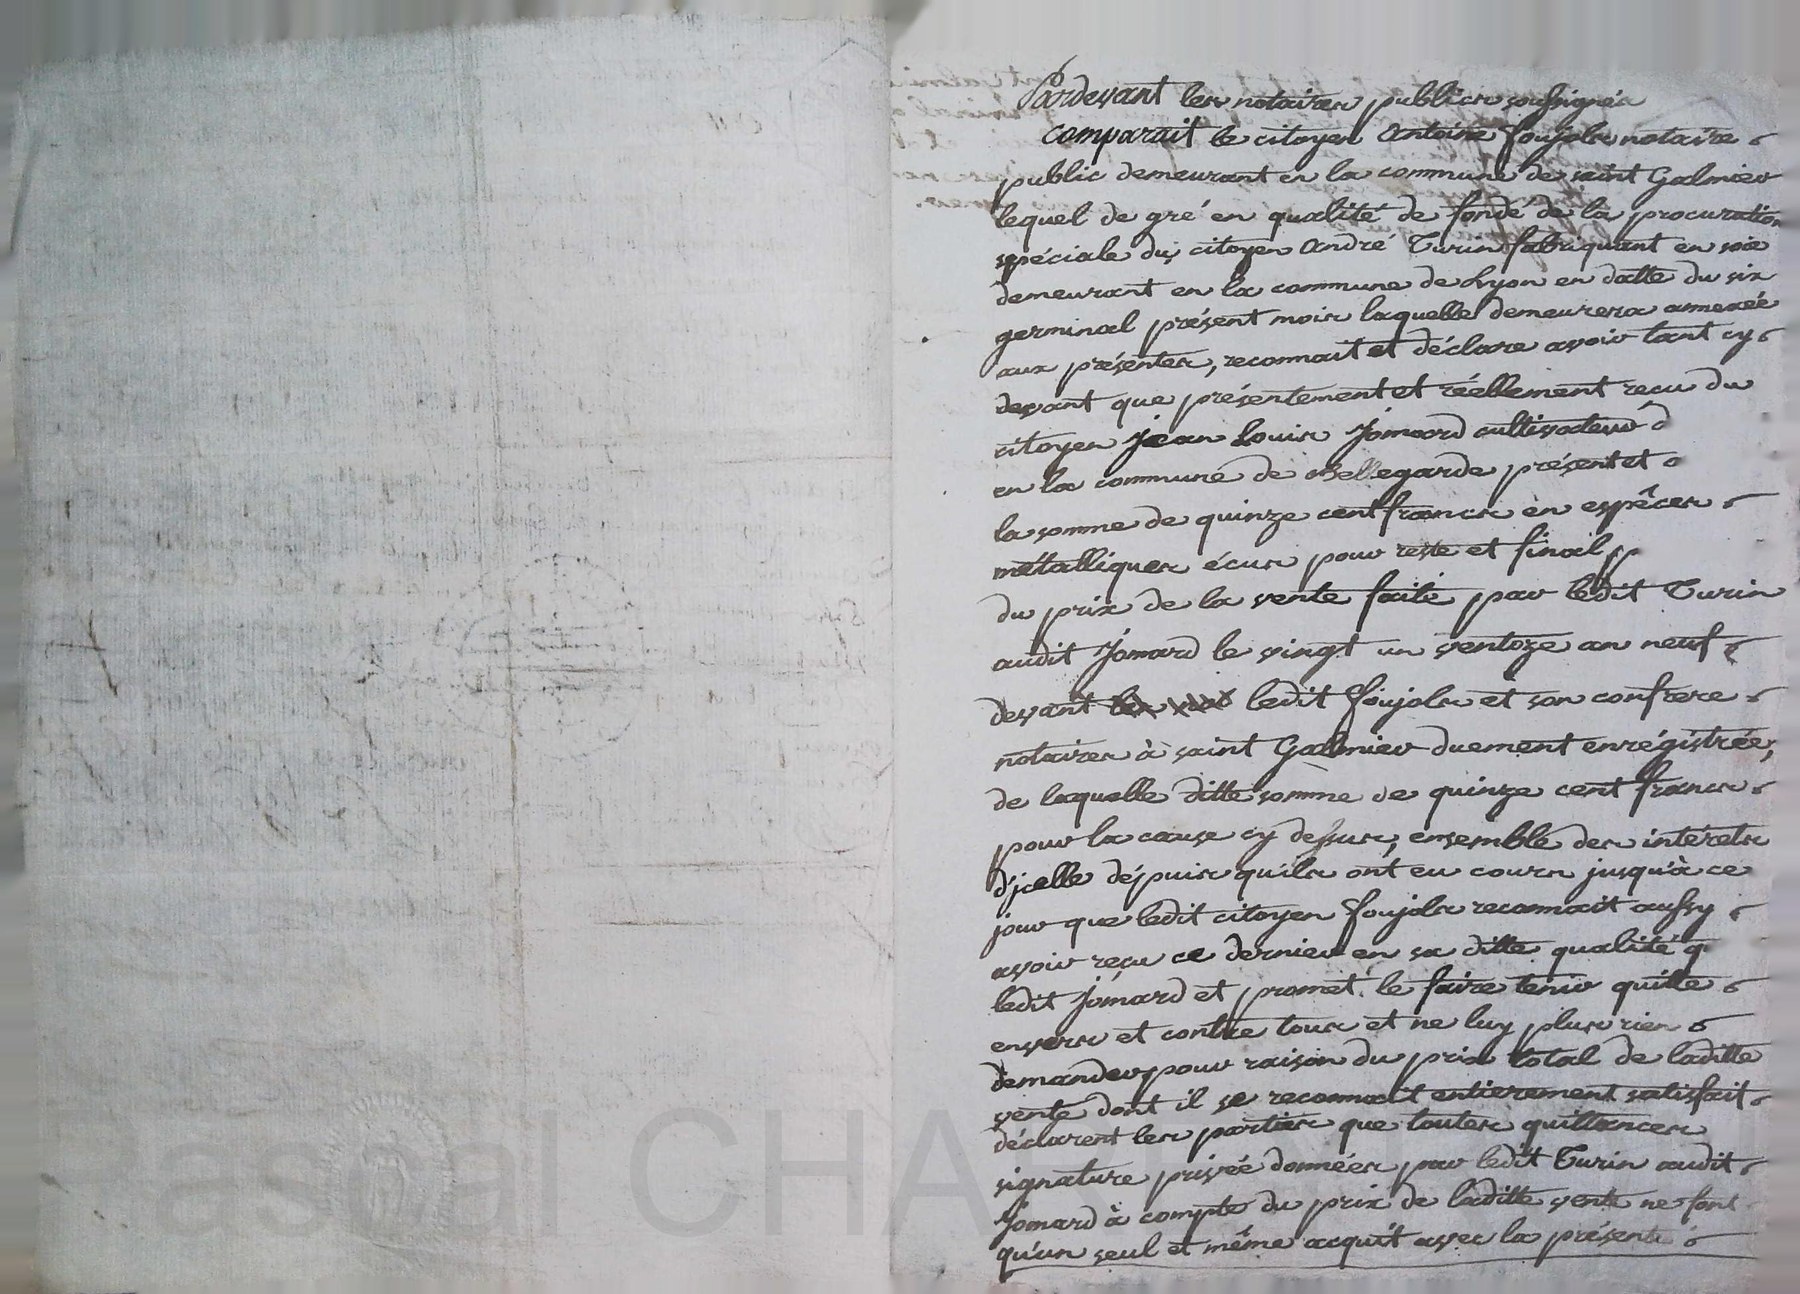 Pardevant les notaires publics soussignés
comparait le citoyen Antoine Foujols notaire
public demeurant en la commune de saint Galmier
lequel de gré en qualité de fondé de la procuration
spéciale du citoyen André Turin fabriquant en soie
demeurant en la commune de Lyon en datte du six
germinal présent mois laquelle demeurera annexée
aux présentes, reconnait et déclare avoir tant cy
devant que présentement et réellement recu du
citoyen Jean Louis Jomard cultivateur d
en la commune de Bellegarde présent et a
la somme de quinze cent francs en espêces
métalliques écus pour reste et final p
du prix de la vente faite par ledit Turin
audit Jomard le vingt un ventoze an neuf
devant ledit Foujols et son confrere
notaires à saint Galmier duement enrégistrée,
de laquelle ditte somme de quinze cent francs
pour la cause cy dessus, ensemble des intérets
d'jcelle dépuis quils ont eu cours jusqu'à ce
jour que ledit citoyen Foujols reconnait aussy
avoir reçu ce dernier en sa ditte qualité q
ledit Jomard et promet le faire tenir quitte
envers et contre tous et ne luy plus rien
demander pour raison du prix total de laditte
vente dont il se reconnait entierement satisfait
déclarent les parties que toutes quittances
signature privée données par ledit Turin audit
Jomard à compte du prix de laditte vente ne font
qu'un seul et même acquit avec la présente
Pascal CHAR